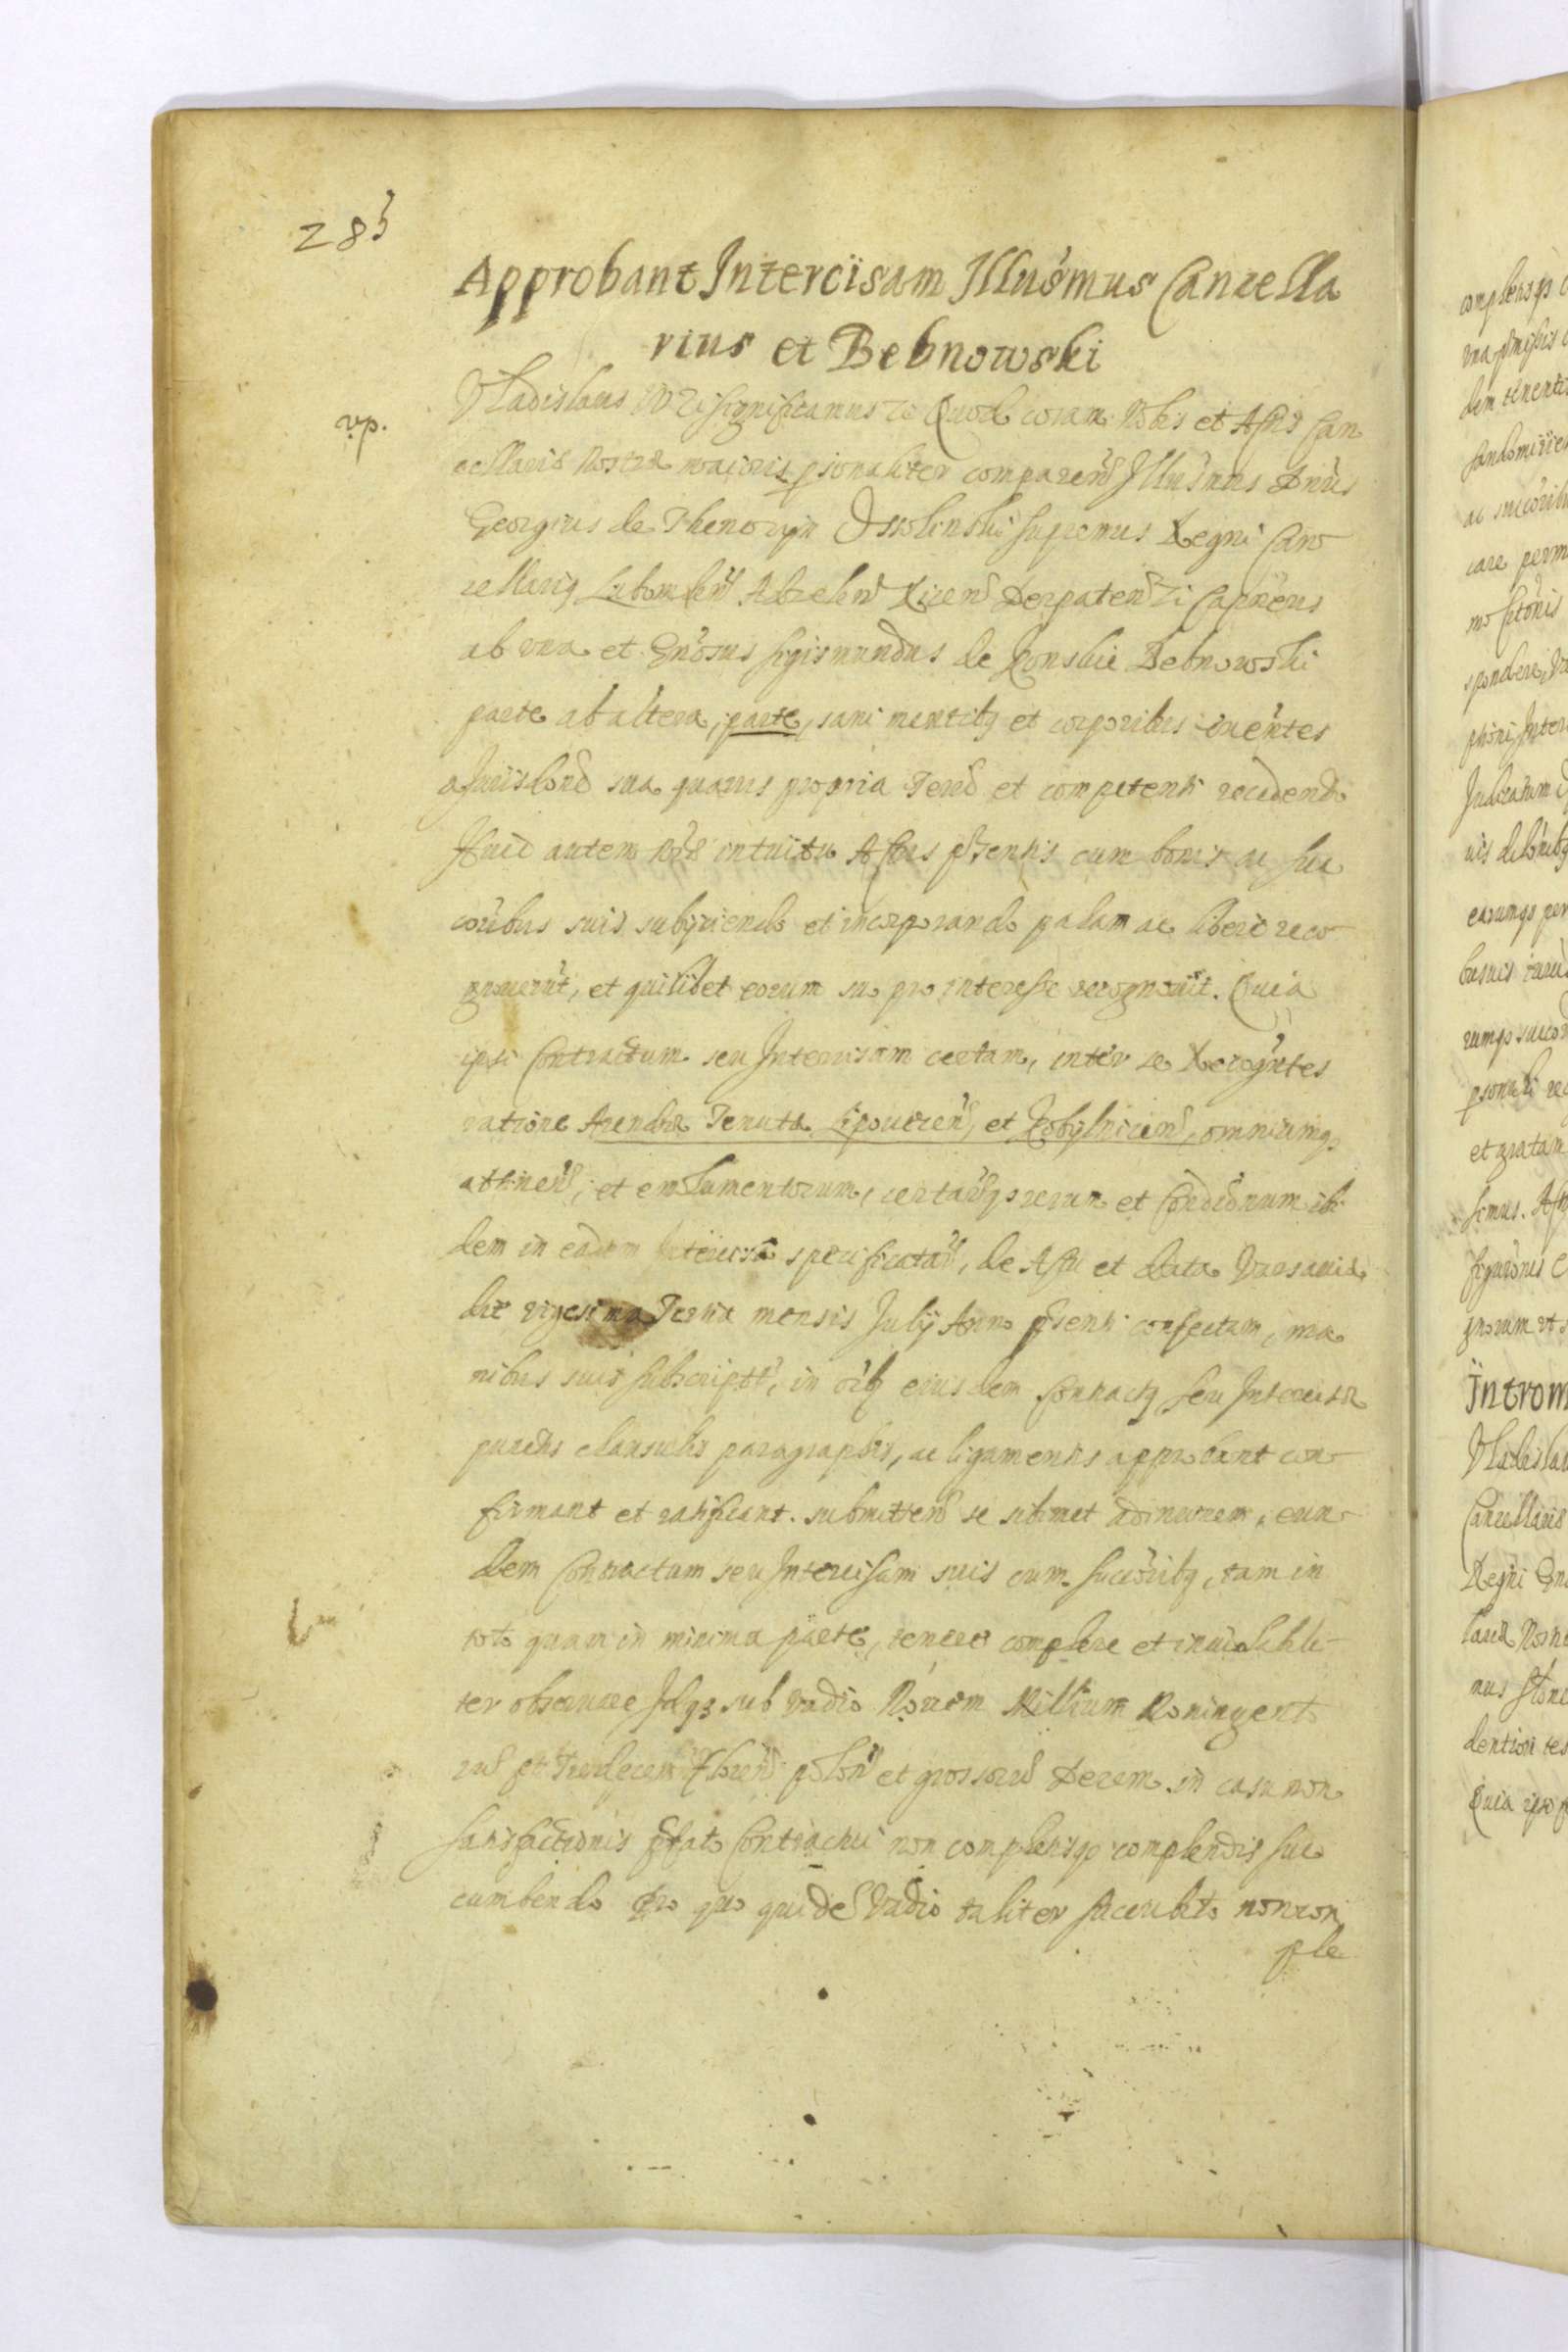 285
Approbant Intercisam Illusmus Cancella
rius et Bebnowski
vp.
Vladislaus IV Rz significamus &c Quod coram Nobis et Actis Can
cellariæ Nostræ maioris psonaliter comparens Illusmus Dnus
Georgius de Thenczyn Ossolinski supremus Regni Can
cellariq Lubomlen Adzelen Derpaten Capneus
ab vna et Gnosus Sigismundus de Konskie Bebnowski
parte ab altera, parte, sani mentibq et corporibus existentes
a Jurisdone sua quauis propria Terrs et competenti recedendo
Huic autem intuitu Actus psentis cum bonis ac suc
coribus suis subijciendo et incorporando palam ac libere reco
gnouerut, et quilibet eorum suo pro interesse recognouit. Quia
ipsi Contractum seu Intercisam certam, inter se Recognntes
ratione Arendæ Tenutæ Lipouecen, et Kobylnicen, omniumqs
attinen, et emolumentorum, certarqs rerum et Condicionum ibi
dem in eadem Intercisa specificatar, de Actu et data Varsauiæ
die vigesima Tertia mensis Julij Anno psenti confectam, ma
nibus suis subscript, in oibq eiusdem Contractq seu Intercisæ
punctis clausulis paragraphis, ac ligamentis approbant con
firmant et ratificant. submitten se sibimet adinuicem, eun
dem Contractum seu Intercisam suis cum succoribq, tam in
toto quam in minima parte, tenere complere et inuiolabili
ter obseruare Idqs sub vadio Nouem Millium Noningento
ru et Tredecem Floren polon et grossoru Decem in casu non
satisfactionis pfato Contractui non completisqs complendis suc
cumbendo Pro quo quide Vadio taliter succubito non con
ple